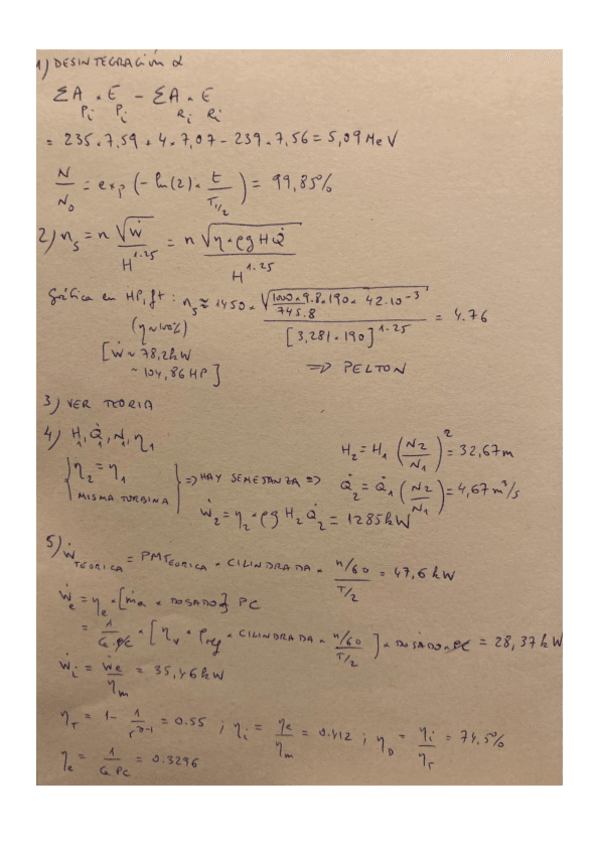 1) DESINTEGRACIÓN α
ΣA_Pi · E_Pi - ΣA_Ri · E_Ri
= 235·7,59 + 4·7,07 - 239·7,56 = 5,09 MeV
N/N0 = exp(-ln(2)· t/T1/2) = 99,85%
2) ns = n √Ẇ / H^1.25 = n √(η·ρgHQ̇) / H^1.25
Gráfica en HP, ft: ns ≈ 1450· √(1000·9.8·190·42·10^-3 / 745.8) / [3,281·190]^1.25 = 4.76
(η~100%)
[Ẇ ~ 78,2kW
~ 104,86HP]
=> PELTON
3) VER TEORIA
4) H1, Q̇1, N1, η1
{ η2 = η1
MISMA TURBINA } => HAY SEMEJANZA =>
H2 = H1 (N2/N1)^2 = 32,67m
Q̇2 = Q̇1 (N2/N1) = 4,67m³/s
Ẇ2 = η2·ρg H2 Q̇2 = 1285kW
5) Ẇ TEORICA = PMTEORICA · CILINDRADA · (n/60)/(T/2) = 47,6kW
Ẇe = ηe·[ṁa · DOSADO] PC
= 1/(Ge·PC) · [ηv · ρref · CILINDRADA · (n/60)/(T/2)] · DOSADO·PC = 28,37kW
Ẇi = Ẇe/ηm = 35,46kW
ηT = 1 - 1/r^(γ-1) = 0.55 ; ηi = ηe/ηm = 0.412 ; ηD = ηi/ηT = 74.5%
ηe = 1/(Ge PC) = 0.3296